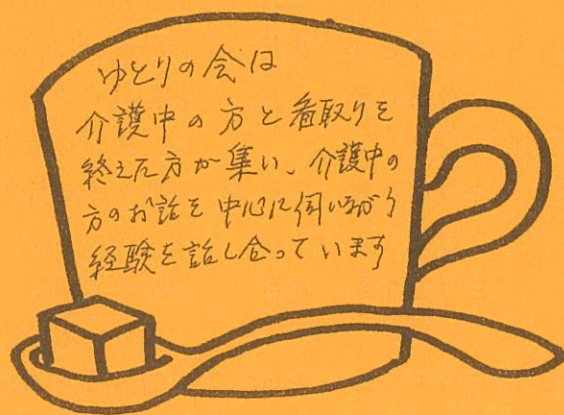 ゆとりの会は
介護中の方と看取りを
終えた方が集い、介護中の
方のお話を中心に伺いながら
経験を話し合っています